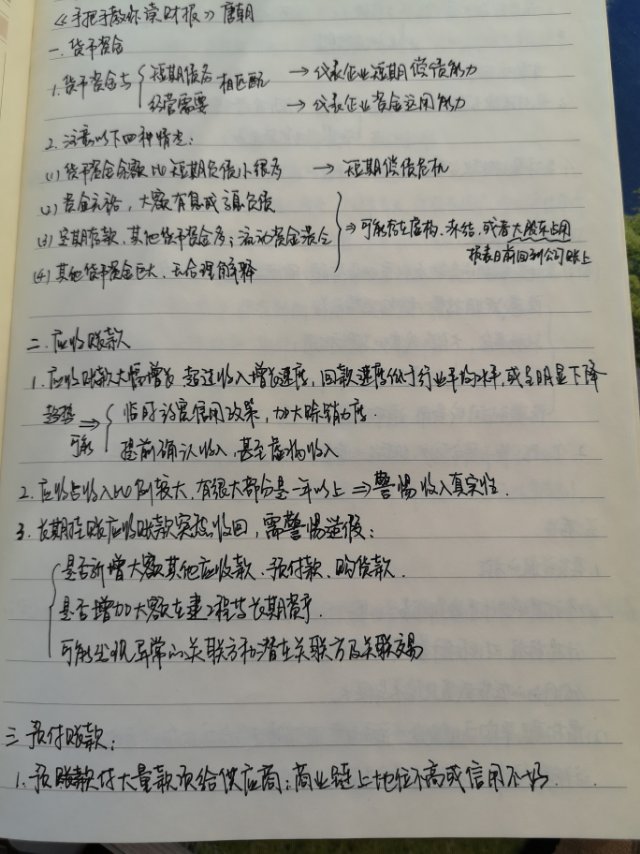 《手把手教你读财报》唐朝
一. 货币资金
1. 货币资金与 { 短期债务 相匹配 → 代表企业短期偿债能力
经营需要 → 代表企业资金运用能力
2. 注意以下四种情况:
(1) 货币资金余额比短期负债小很多 → 短期偿债危机
(2) 资金充裕, 大额有息或高息负债
(3) 定期存款, 其他货币资金多; 流动资金最少
(4) 其他货币资金巨大, 无合理解释
⇒ 可能存在虚构、冻结, 或者大股东占用
报表日前回到公司账上
二. 应收账款
1. 应收账款大幅增长 超过收入增长速度, 回款速度低于行业平均水平, 或呈明显下降
趋势 ⇒ { 临时放宽信用政策, 加大赊销力度.
可能 提前确认收入, 甚至虚构收入
2. 应收占收入比例较大, 有很大部分是一年以上 ⇒ 警惕收入真实性.
3. 长期挂账应收账款突然收回, 需警惕造假:
是否新增大额其他应收款、预付款、购货款.
是否增加大额在建工程等长期资产.
可能出现异常的关联方和潜在关联方及关联交易
三. 预付账款:
1. 预账款付大量款项给供应商: 商业链上地位不高或信用不好.